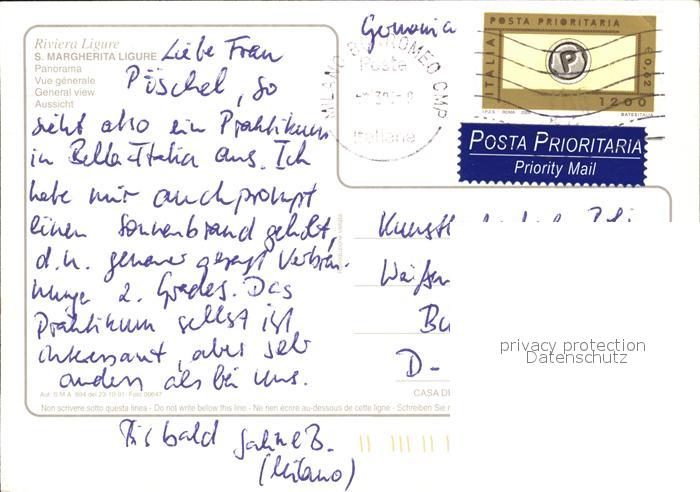 Riviera Ligure
S. MARGHERITA LIGURE
Panorama
Vue générale
General view
Aussicht
Liebe Frau
Pöschel, so
sieht also ein Praktikum
in Bella Italia aus. Ich
habe mir auch prompt
einen Sonnenbrand geholt,
d.h. genauer gesagt Verbren-
nunge 2. Grades. Das
Praktikum selbst ist
interessant, aber sehr
anders als bei uns.
Bis bald
(Milano)
Aut. S.M.A. 694 del 23-10-91
Non scrivere sotto questa linea - Do not write below this line - Ne rien écrire au-dessous de cette ligne - Schreiben Sie
CASA
Germania
MILANO BORROMEO CMP
Poste
Italiane
POSTA PRIORITARIA
ITALIA
P
€ 0,62
1200
I.P.Z.S. - ROMA
POSTA PRIORITARIA
Priority Mail
D-
privacy protection
Datenschutz